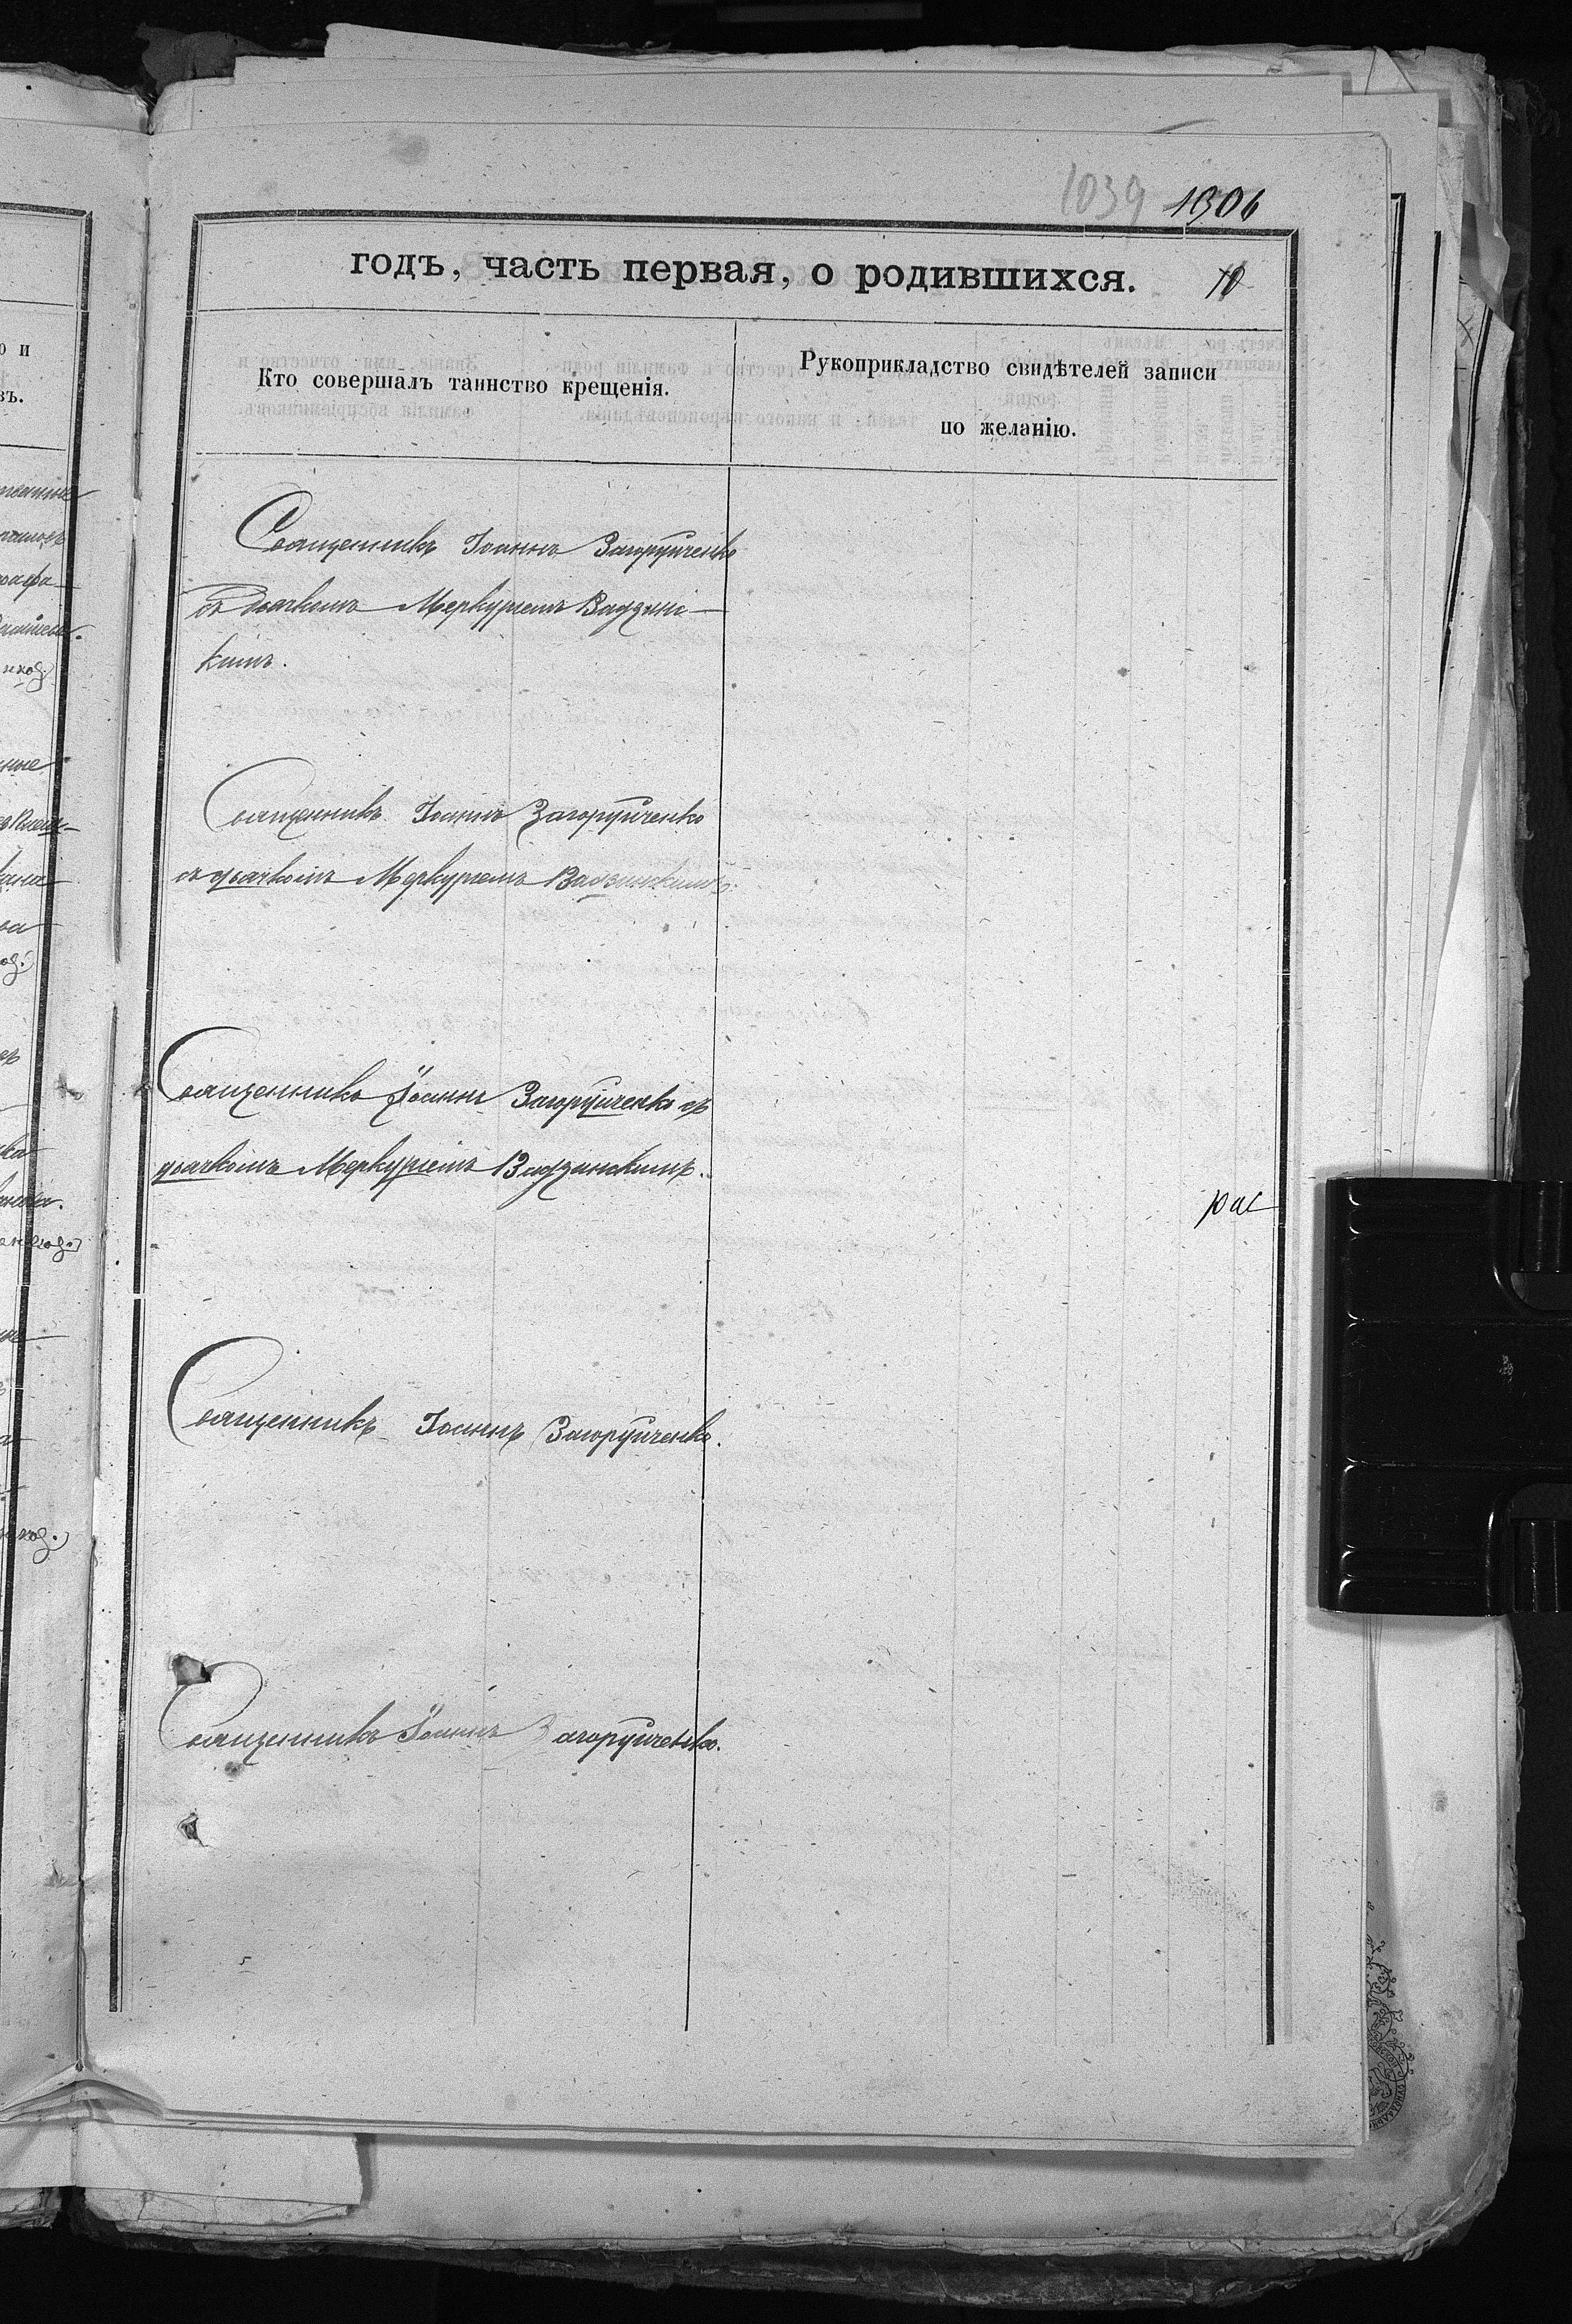 1039 1906
годъ, часть первая, о родившихся. 10
Кто совершалъ таинство крещенія.
Рукоприкладство свидѣтелей записи
по желанію.
Священникъ Іоаннъ Загоруйченко
съ дьячкомъ Меркуріемъ Вадзинс-
кимъ.
Священникъ Іоаннъ Загоруйченко
съ дьячкомъ Меркуріемъ Вадзинскимъ.
Священникъ Іоаннъ Загоруйченко съ
дьячкомъ Меркуріемъ Вадзинскимъ.
Священникъ Іоаннъ Загоруйченко.
Священникъ Іоаннъ Загоруйченко.